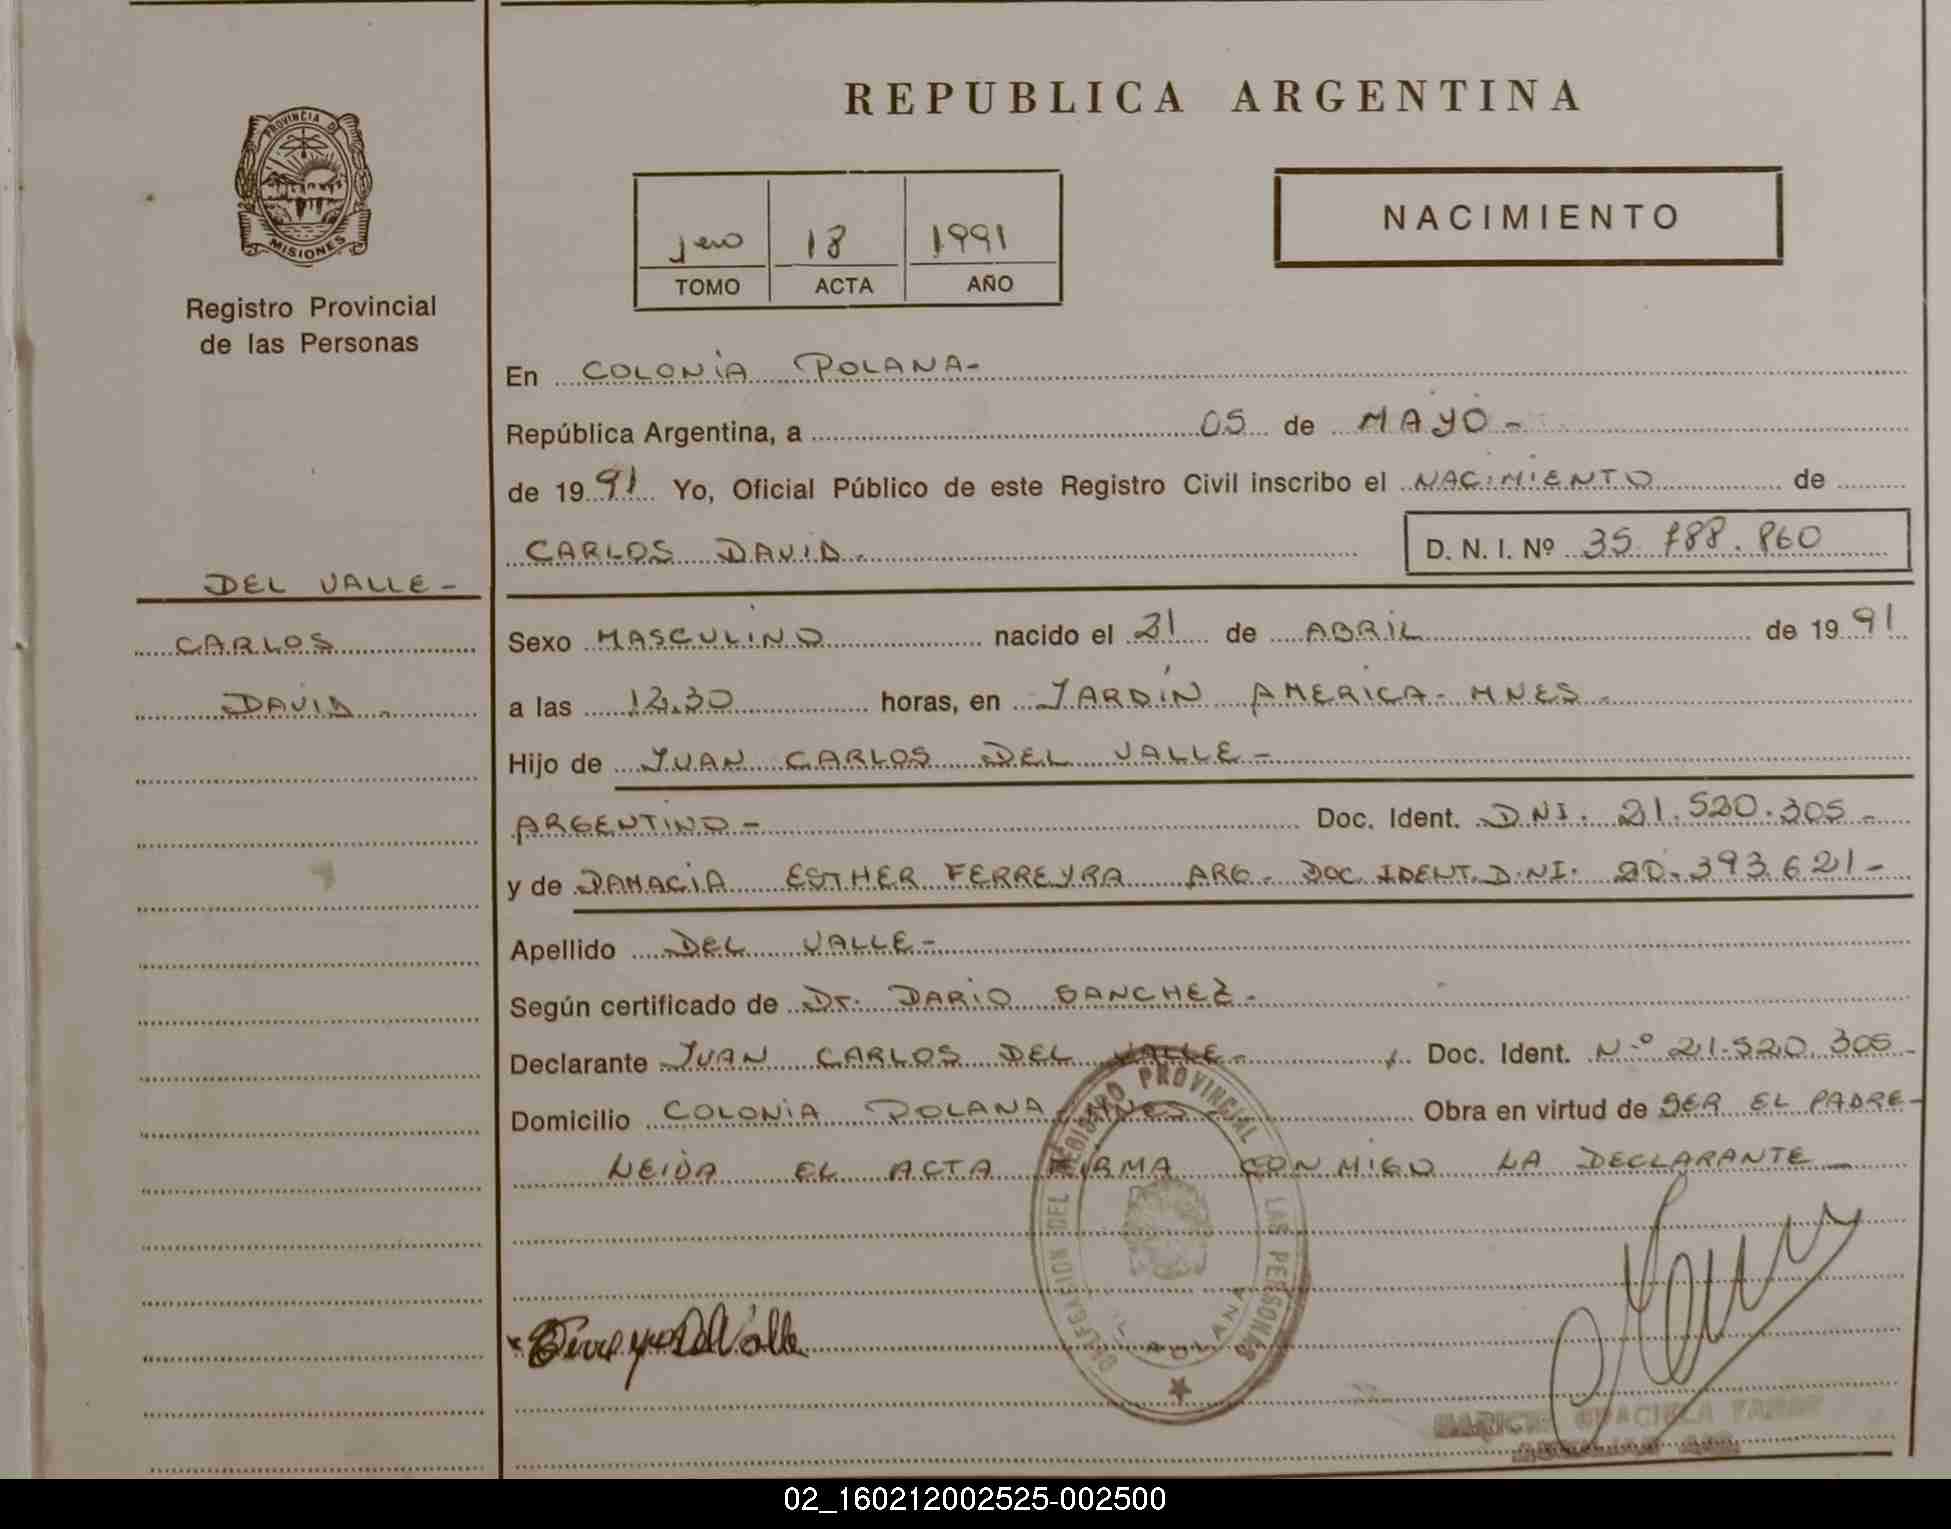 REPUBLICA ARGENTINA
PROVINCIA DE
MISIONES
Registro Provincial
de las Personas
1ero 18 1991
TOMO ACTA AÑO
NACIMIENTO
En COLONIA POLANA-
República Argentina, a 05 de MAYO-
de 1991 Yo, Oficial Público de este Registro Civil inscribo el NACIMIENTO de
CARLOS DAVID.- D. N. I. Nº 35.788.860
DEL VALLE-
CARLOS
DAVID.-
Sexo MASCULINO nacido el 21 de ABRIL de 1991
a las 12.30 horas, en JARDIN AMERICA- MNES-
Hijo de JUAN CARLOS DEL VALLE-
ARGENTINO- Doc. Ident. DNI. 21.520.305-
y de DAMACIA ESTHER FERREYRA ARG- DOC IDENT. D.NI. 20.393.621-
Apellido DEL VALLE-
Según certificado de Dr. DARIO SANCHEZ-
Declarante JUAN CARLOS DEL VALLE- Doc. Ident. N.º 21.520.305-
Domicilio COLONIA POLANA MNES- Obra en virtud de SER EL PADRE-
LEIDA EL ACTA FIRMA CONMIGO LA DECLARANTE-
DELEGACION DEL REGISTRO PROVINCIAL LAS PERSONAS
POLANA
Ferreyra Del Valle
GRACIELA
02_160212002525-002500